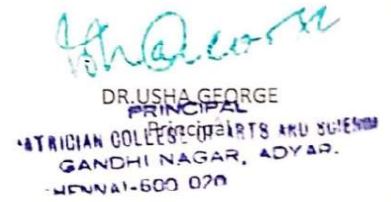 DR.USHA GEORGE
PRINCIPAL
Principal
PATRICIAN COLLEGE OF ARTS AND SCIENCE
GANDHI NAGAR, ADYAR.
CHENNAI-600 020